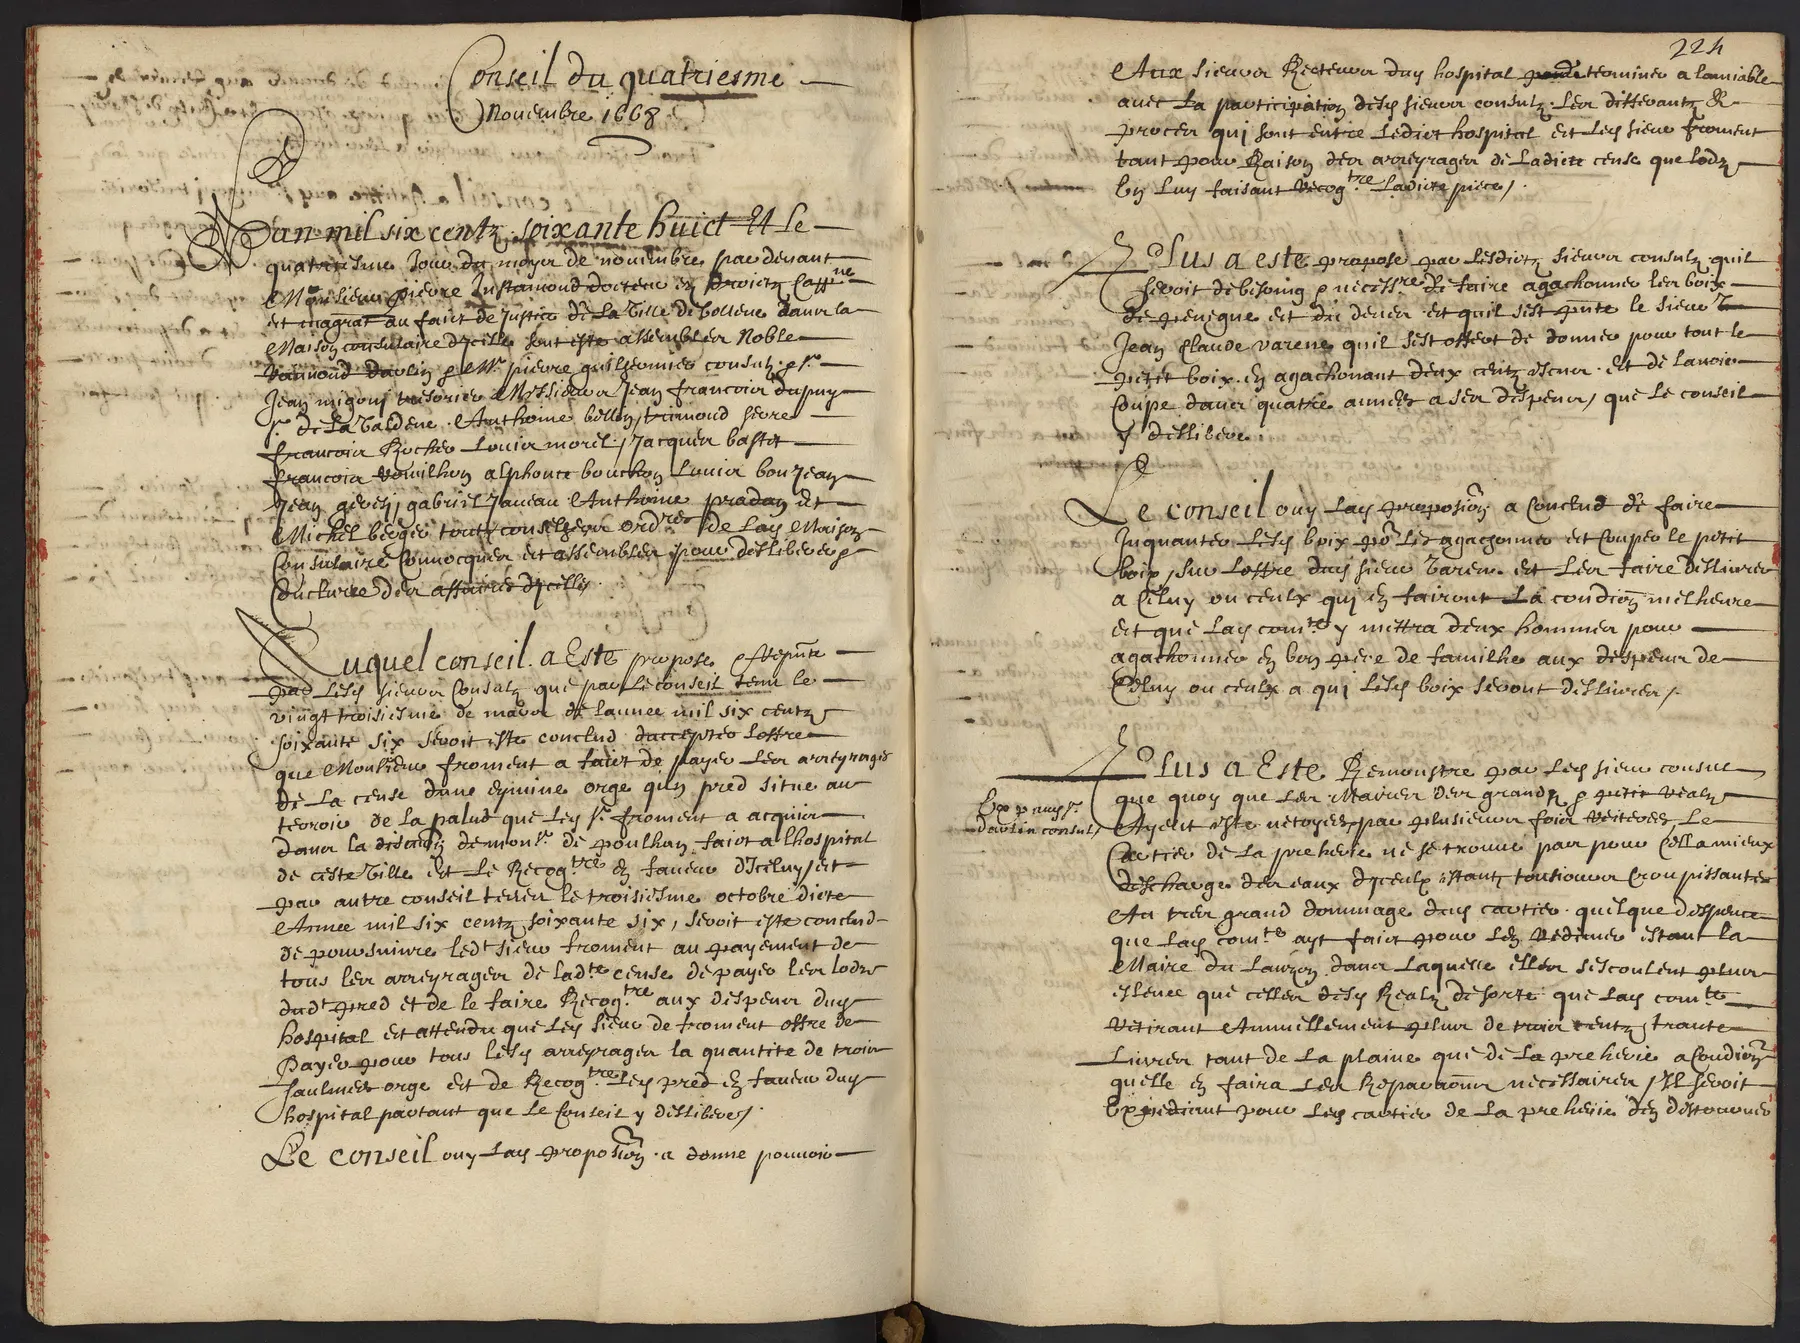 Conseil du quatriesme
Novembre 1668
L'an mil six centz soixante huict et le
quatriesme jour du moys de novembre par devant
Monsieur pierre Instamond docteur ez droictz Cappne
et magrat au faict de justice de la Ville de bollene dans la
Maison consulaire d'ycelle sont este assembles Noble
Raimond daulin & Mr pierre guilheomier consulz & sr
Jean migoui tresorier Messieurs Jean francois dupuy
sr de la Valdene Anthoine bollon trimond serre
francois Rocher Louis morel Jacques bastet
francois alphonce bouchon Louis bonjean
Jean gabriel Janeau Anthoine pradan et
Michel bergier toutz conselhers ordres de lad Maison
Consulaire Convocques et assembles pour desliberer &
Conclurre des affaires d'ycelle
Auquel conseil a Este propose & represente
par lesd sieurs Consulz que par le conseil tenu le
vingt troisiesme de mars de l'annee mil six centz
soixante six seroit este conclud d'accepter l'offre
que Monsieur froment a faict de payer les arreyrages
de la cense d'une eymine orge qu'un pred situe au
terroir de la palud que led sr froment a acquis
dans la de monsr de poulhan faict a l'hospital
de ceste Ville et le Recogtre en faveur d'iceluy et
par autre conseil tenu le troisiesme octobre dicte
Annee mil six centz soixante six, seroit este conclud
de poursuivre ledt sieur froment au payement de
tous les arreyrages de ladte cense de payer les lodz
dudt pred et de le faire Recogtre aux despens dud
hospital et attendu que led sieur de froment offre de
Payer pour tous lesd arreyrages la quantite de trois
saulmees orge et de Recogtre led pred en faveur dud
hospital partant que le Conseil y deslibere /.
Le conseil ouy lad proposion a donne pouvoir
224
Aux sieurs Recteurs dud hospital terminer a l'amiable
avec la participation desd sieurs consulz les differantz &
proces qui sont entre ledict hospital et led sieur froment
tant pour Raison des arreyrages de ladicte cense que lodz
en luy faisant recogtre ladicte piece /.
Plus a este propose par lesdictz sieurs consulz quil
seroit de besoing & necessre de faire agachonner les boix
et quil sest pnte le sieur
Jean Claude varene quil sest offert de donner pour tout le
petit boix en agachonant deux centz escus et de l'avoir
Coupe dans quatre annees a ses despens / que le conseil
y deslibere.
Le conseil ouy lad proposion a Conclud de faire
Inquanter lesd boix por les agachonner et Couper le petit
boix sur l'offre dud sieur Varene et les faire deslivrer
a Celuy ou ceulx qui en fairont la condion melheure
et que lad comte y mettra deux hommes pour
agachonner en bon pere de familhe aux despens de
Celuy ou ceulx a qui lesd boix seront deslivres /.
Plus a Este Remonstre par led sieur consul
que quoy que les Maires des grandz & petit Realz
Ayent este netoyees par plusieurs fois reiterees Le
Cartier de la preherie ne se trouve pas pour Cella mieux
descharge des eaux d'yceulx estantz tousiours Croupissantes
Au tres grand dommage dud cartier quelque despence
que lad comte ayt faict pour les redimer estant la
Maire du Lauzon dans laquelle elles s'escoulent plus
eslevee que celles desd Realz de sorte que lad comte
retirant Annuellement plus de trois centz trante
Livres tant de la plaine que de la preherie a Condion
quelle en faira les Reparaons necessaires / Il seroit
Expediant pour led cartier de la preherie d'en destourner
par mesd sr
daulin consul /